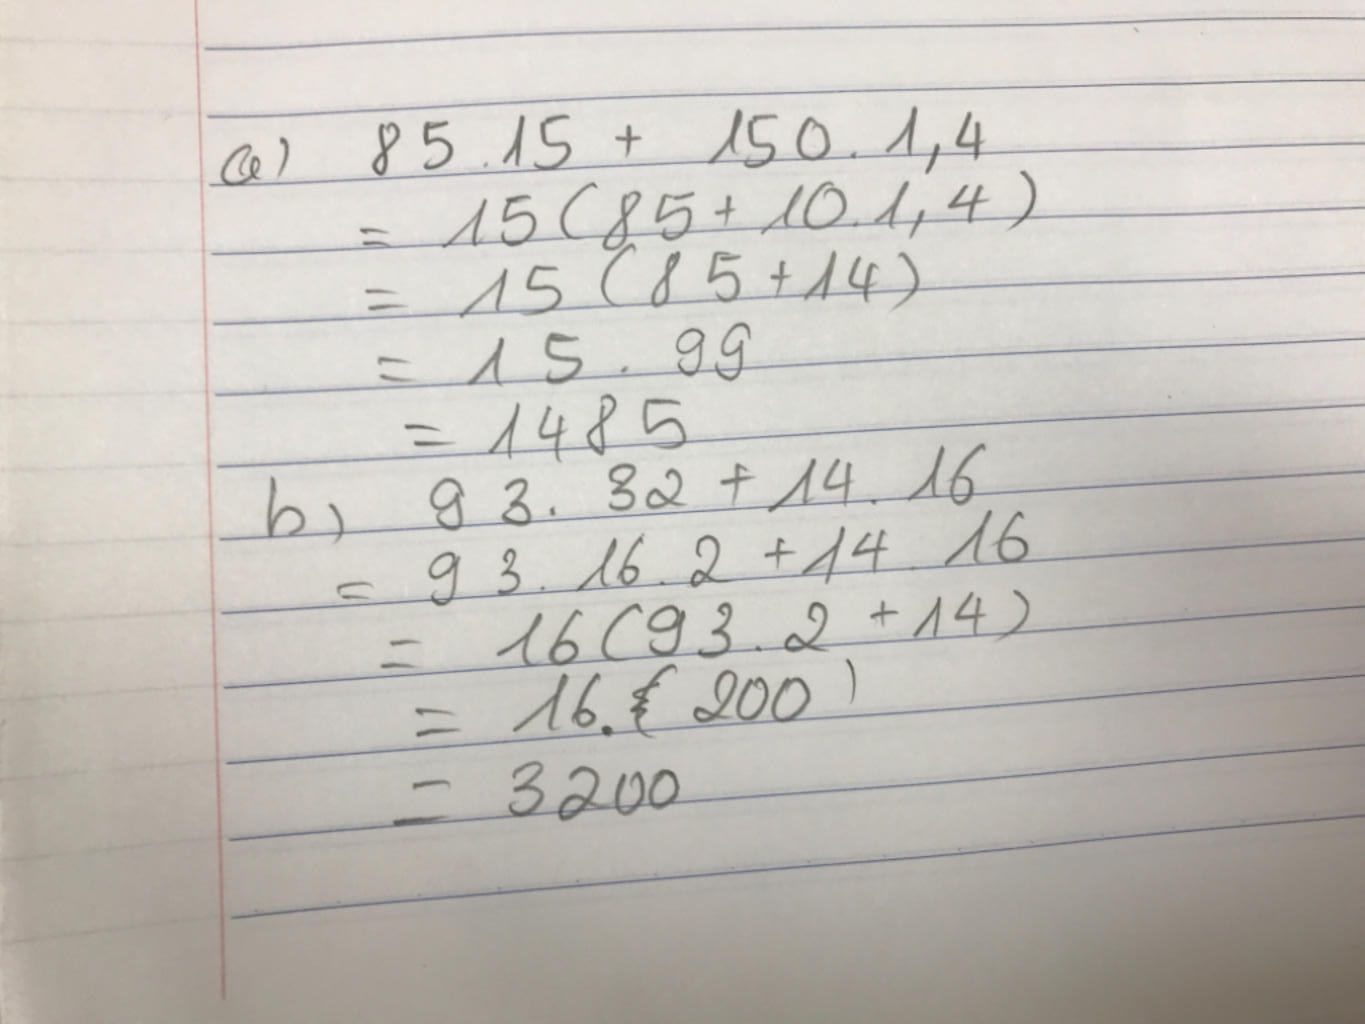 a) 85.15 + 150.1,4
= 15(85+10.1,4)
= 15(85+14)
= 15.99
= 1485
b) 93.32+14.16
= 93.16.2+14.16
= 16(93.2+14)
= 16.(200)
= 3200